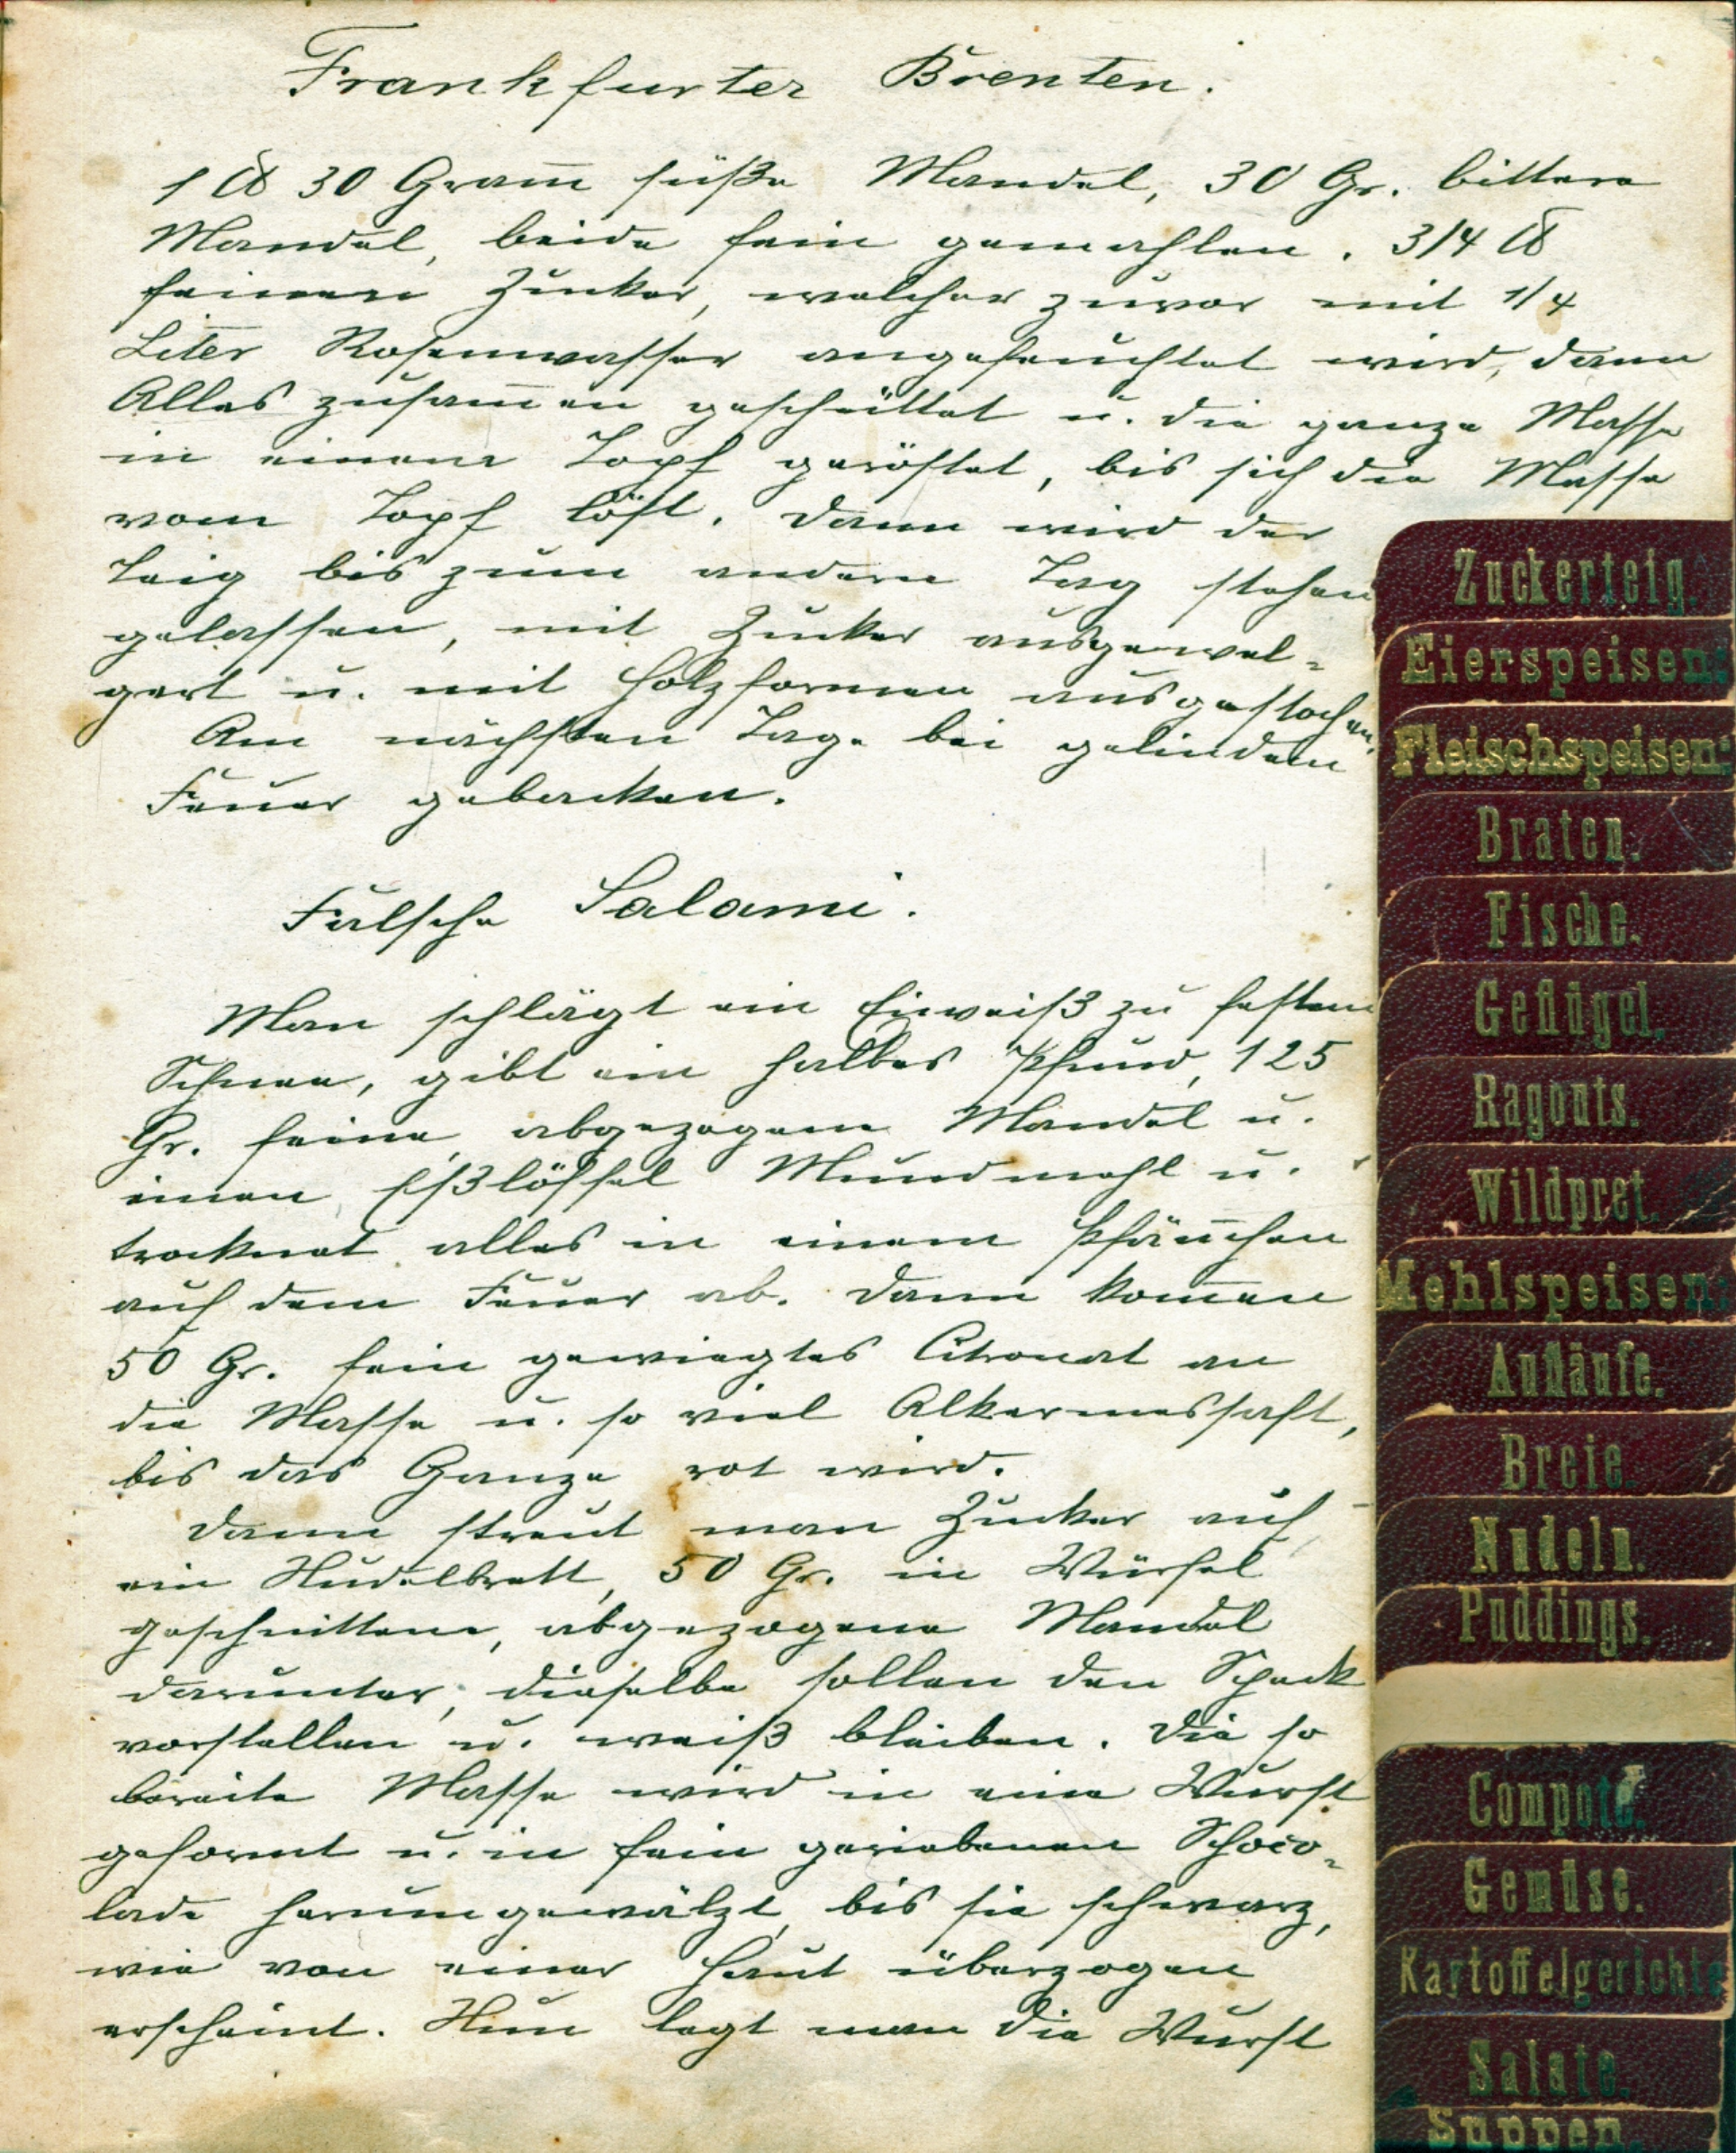 Frankfurter Brenten.
1 ℔ 30 Gram̅ süße Mandel, 30 Gr. bittere
Mandel, beide fein gemahlen. 3/4 ℔
feinen Zucker, welcher zuvor mit 1/4
Liter Rosenwasser angefeuchtet wird, dann
Alles zusam̅en geschüttet u. die ganze Masse
in einem Topf geröstet, bis sich die Masse
vom Topf löst. Dann wird der
Teig bis zum andern Tag stehen
gelassen, mit Zucker ausgewel-
gert u. mit Holzformen ausgestochen.
Am nächsten Tage bei gelindem
Feuer gebacken.
Falsche Salami.
Man schlägt ein Eiweiß zu festem
Schnee, gibt ein halbes Pfund, 125
Gr. feine, abgezogene Mandel u.
einen Eßlöffel Mundmehl u.
trocknet alles in einem Pfän̅chen
auf dem Feuer ab. Dann kom̅en
50 Gr. fein gewiegtes Citronat an
die Masse u. so viel Alkermessaft,
bis das Ganze rot wird.
Dann streut man Zucker auf
ein Nudelbrett, 50 Gr. in Würfel
geschnittene, abgezogene Mandel
darunter, dieselbe sollen den Speck
vorstellen u. weiß bleiben. Die so
bereite Masse wird in eine Wurst
geformt u. in fein geriebenen Schoco-
lade herumgewälzt, bis sie schwarz,
wie von einer Haut überzogen
erscheint. Nun legt man die Wurst
Zuckerteig.
Eierspeisen:
Fleischspeisen:
Braten.
Fische.
Geflügel.
Ragouts.
Wildpret.
Mehlspeisen:
Aufläufe.
Breie.
Nudeln.
Puddings.
Compote.
Gemüse.
Kartoffelgerichte
Salate.
Suppen.